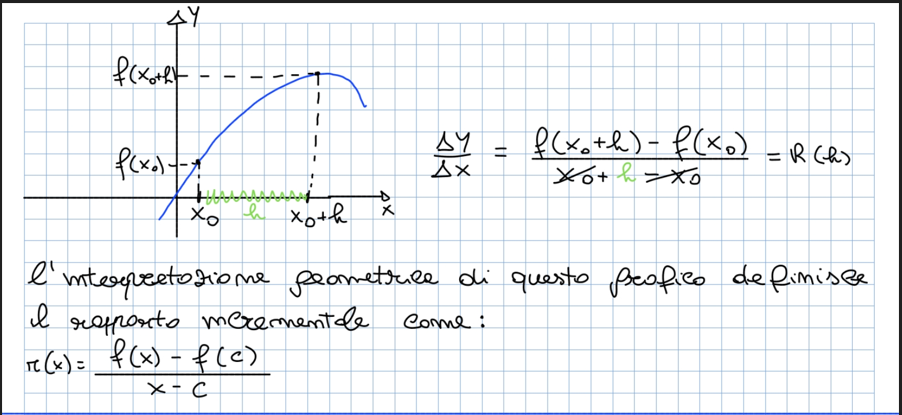 ΔY
f(x₀+h)
f(x₀)
x₀ h x₀+h x
ΔY/Δx = (f(x₀+h) - f(x₀))/(x₀ + h - x₀) = R(h)
l'interpretazione geometrica di questo grafico definisce
il rapporto incrementale come:
r(x) = (f(x) - f(c))/(x - c)